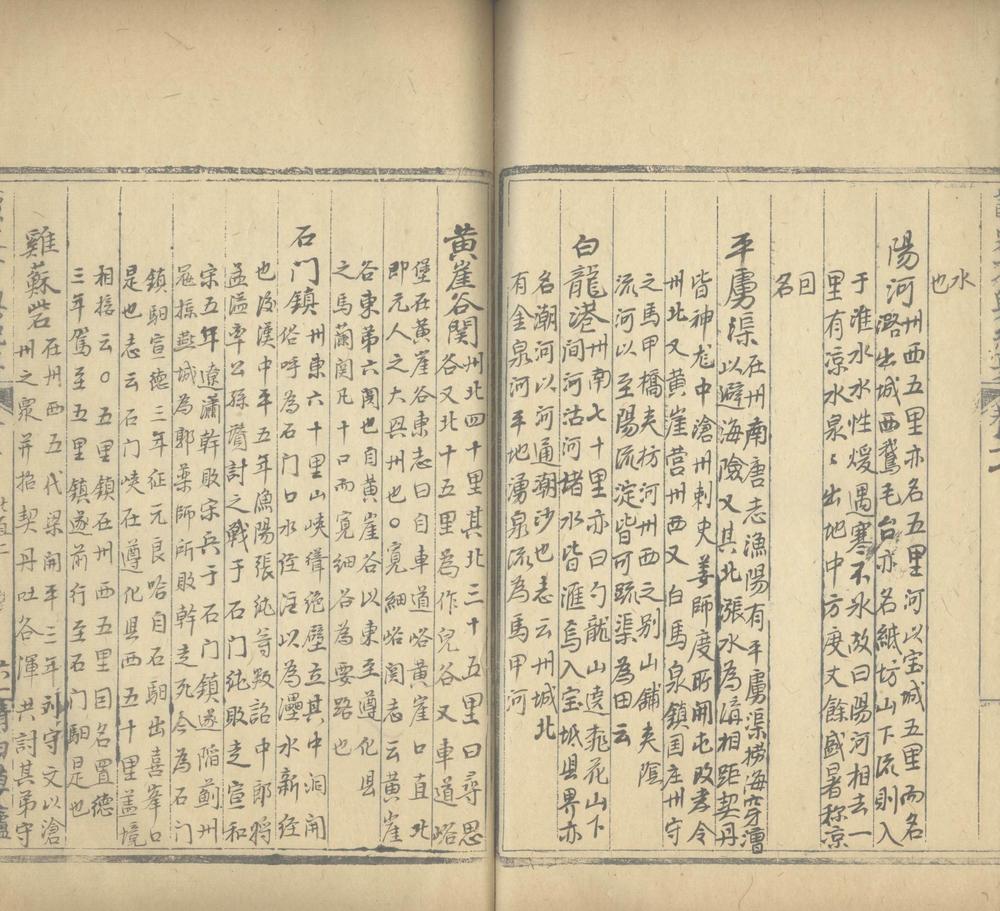 水
也
陽河
州西五里亦名五里河以宝城五里而名
潞出城西鵞毛台亦名紙坊山下流則入
于淮水水性煖遇寒不氷故曰陽河相去一
里有凉水泉〻出地中方广丈餘盛暑称凉
回
名
平虜渠
在州南唐志漁陽有平虜渠捞海穿漕
以避海險又其北漲水為溝相距契丹
皆神龙中滄州刺史姜師度所開屯政考令
州北又黄崖营州西又白馬泉鎮国庄州守
之馬甲橋夹坊河州西之别山鋪夹隂
流河以至陽流淀皆可疏渠為田云
白龍港
州南七十里亦曰勺龍山遶桃花山下
间河沽河堵水皆滙焉入宝坻县界亦
名潮河以河通潮沙也志云州城北
有金泉河平地湧泉流為馬甲河
黄崖谷関
州北四十里其北三十五里曰尋思
谷又北十五里為作兒谷又車道峪
堡在黄崖谷東志曰自車道峪黄崖口直北
即元人之大興州也○寛細峪関志云黄崖
谷東第六関也自黄崖谷以東至遵化县
之馬蘭関凡十口而寛细谷為要路也
石门鎮
州東六十里山峡聳绝壁立其中洞開
俗呼為石门口水径注以為灅水新径
也後漢中平五年漁陽張純等叛詔中郎将
孟溢率公孫瓚討之戰于石门純敗走宣和
宋五年遼瀟幹敗宋兵于石门鎮遂陥薊州
冦掠燕城為郭薬師所敗幹走死今為石门
鎮馹宣德三年征兀良哈自石馹出喜峯口
是也志云石门峡在遵化县西五十里盖境
相接云○五里鎮在州西五里因名置德
三年駕至五里鎮遂前行至石门馹是也
雞蘇砦
在州西五代梁開平三年刘守文以滄
州之衆并招契丹吐谷渾共討其弟守